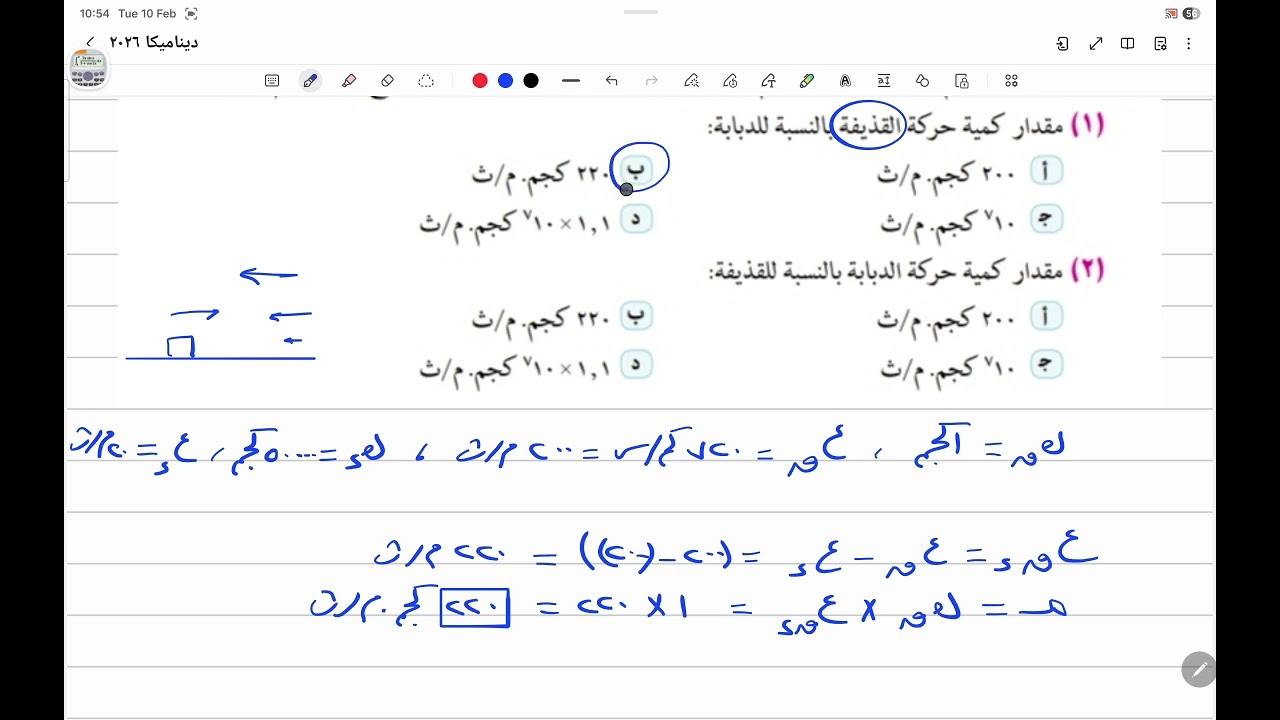 10:54 Tue 10 Feb
56
ديناميكا ٢٠٢٦
(١) مقدار كمية حركة القذيفة بالنسبة للدبابة:
أ ٢٠٠ كجم.م/ث
ب ٢٢٠ كجم.م/ث
ج ١٠^٧ كجم.م/ث
د ١,١ × ١٠^٧ كجم.م/ث
(٢) مقدار كمية حركة الدبابة بالنسبة للقذيفة:
أ ٢٠٠ كجم.م/ث
ب ٢٢٠ كجم.م/ث
ج ١٠^٧ كجم.م/ث
د ١,١ × ١٠^٧ كجم.م/ث
ك‍ق = ١ كجم ، ع‍ق = ٧٢٠ كم/س = ٢٠٠ م/ث ، ك‍د = ٥٠٠٠٠ كجم ، ع‍د =
ع‍ق‍د = ع‍ق − ع‍د = (٢٠٠ − (−٢٠)) = ٢٢٠ م/ث
مـ = ك‍ق × ع‍ق‍د = ١ × ٢٢٠ = ٢٢٠ كجم.م/ث